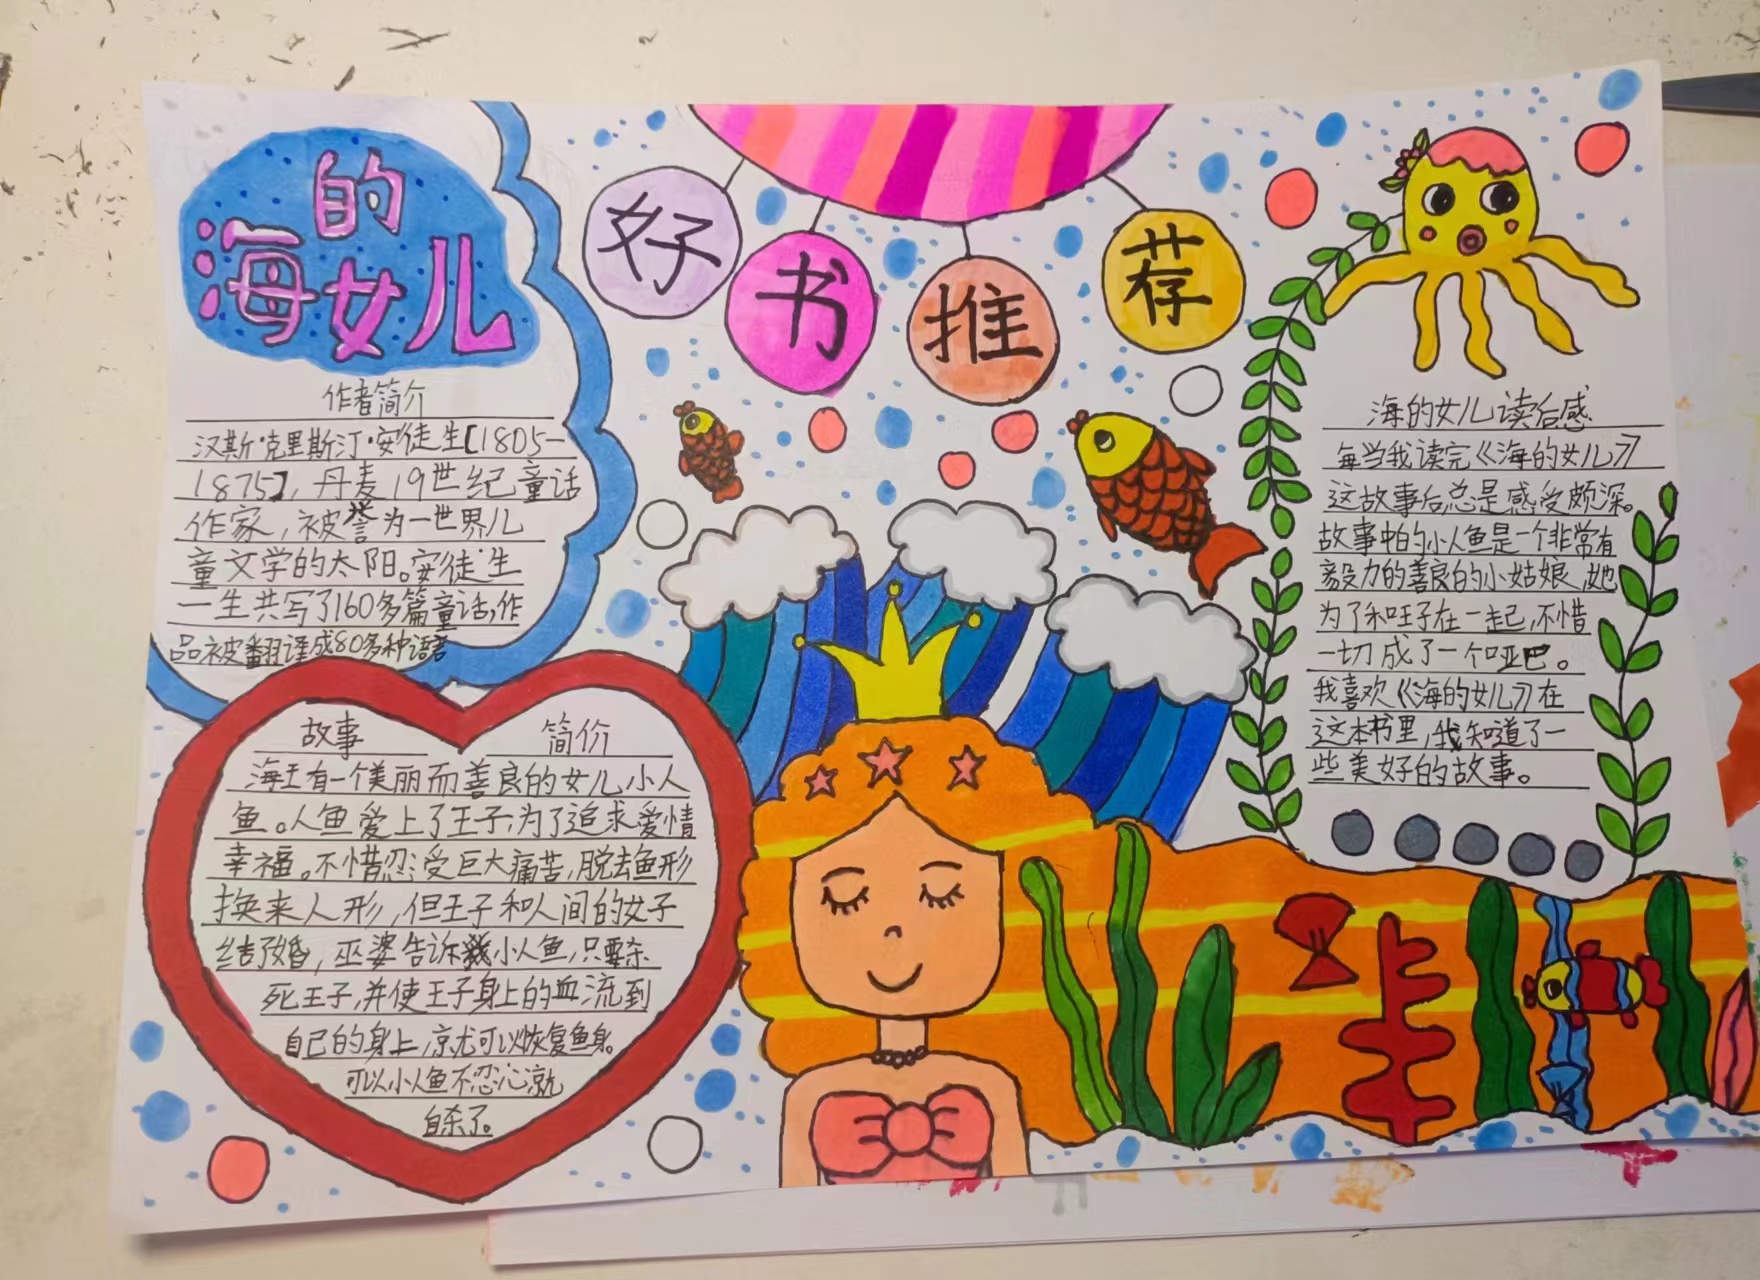 海的女儿
好书推荐
作者简介
汉斯·克里斯汀·安徒生【1805—
1875】，丹麦19世纪童话
作家，被誉为一世界儿
童文学的太阳。安徒生
一生共写了160多篇童话，作
品被翻译成80多种语言
故事 简价
海王有一个美丽而善良的女儿小人
鱼。人鱼爱上了王子，为了追求爱情
幸福。不惜忍受巨大痛苦，脱去鱼形
换来人形，但王子和人间的女子
结了婚，巫婆告诉小人鱼，只要杀
死王子，并使王子身上的血流到
自己的身上，就可以恢复鱼身。
可以小人鱼不忍心就
自杀了。
海的女儿读后感
每当我读完《海的女儿》
这故事后总是感受颇深。
故事中的小人鱼是一个非常有
毅力的善良的小姑娘，她
为了和王子在一起，不惜
一切成了一个哑巴。
我喜欢《海的女儿》在
这本书里，我知道了一
些美好的故事。